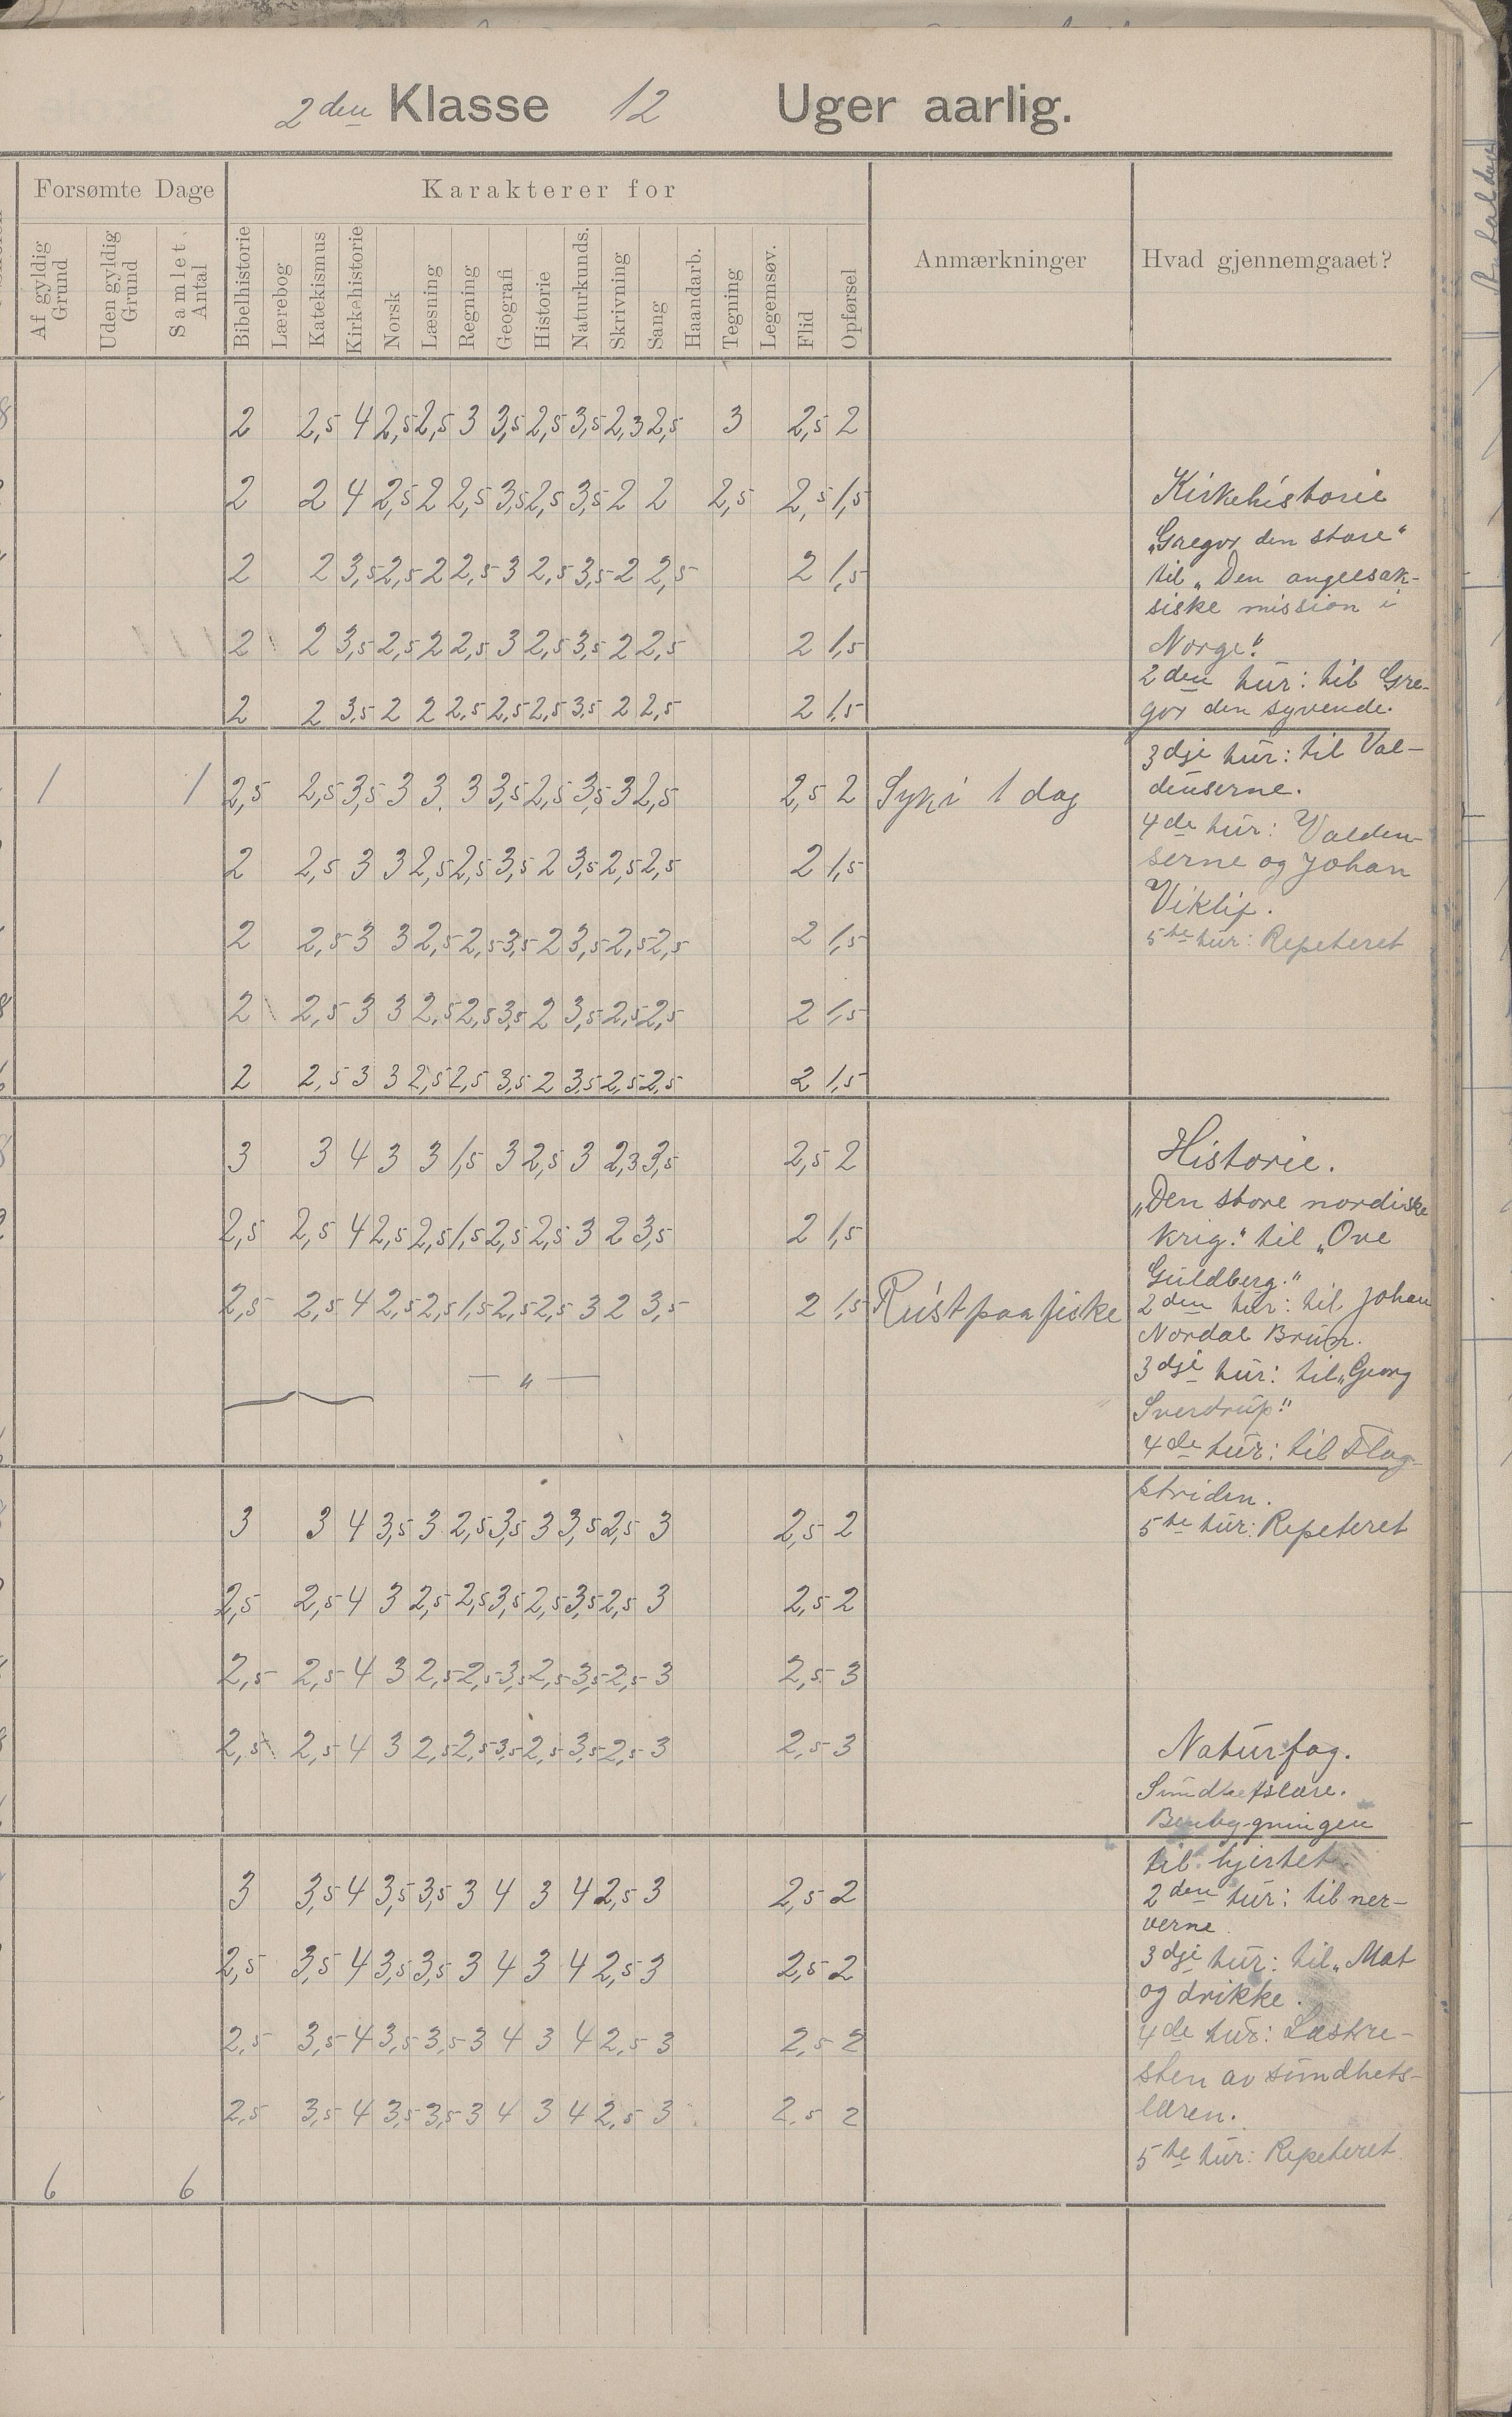 2den Klasse 12 Uger aarlig.
Forsømte Dage
Karakterer for
Anmærkninger
Hvad gjennemgaaet?
Af gyldig Grund
Uden gyldig Grund
Samlet Antal
Bibelhistorie
Lærebog
Katekismus
Kirkehistorie
Norsk
Læsning
Regning
Geografi
Historie
Naturkunds.
Skrivning
Sang
Haandarb.
Tegning
Legemsøv.
Flid
Opførsel
2 2,5 4 2,5 2,5 3 3,5 2,5 3,5 2,3 2,5 3 2,5 2
2 2 4 2,5 2 2,5 3,5 2,5 3,5 2 2 2,5 2,5 1,5
2 2 3,5 2,5 2 2,5 3 2,5 3,5 2 2,5 2 1,5
2 2 3,5 2,5 2 2,5 3 2,5 3,5 2 2,5 2 1,5
2 2 3,5 2 2 2,5 2,5 2,5 3,5 2 2,5 2 1,5
1 1 2,5 2,5 3,5 3 3 3 3,5 2,5 3,5 3 2,5 2,5 2 Syk i 1 dag
2 2,5 3 3 2,5 2,5 3,5 2 3,5 2,5 2,5 2 1,5
2 2,5 3 3 2,5 2,5 3,5 2 3,5 2,5 2,5 2 1,5
2 2,5 3 3 2,5 2,5 3,5 2 3,5 2,5 2,5 2 1,5
2 2,5 3 3 2,5 2,5 3,5 2 3,5 2,5 2,5 2 1,5
3 3 4 3 3 1,5 3 2,5 3 2,3 3,5 2,5 2
2,5 2,5 4 2,5 2,5 1,5 2,5 2,5 3 2 3,5 2 1,5
2,5 2,5 4 2,5 2,5 1,5 2,5 2,5 3 2 3,5 2 1,5 Reist paa fiske
— „ —
3 3 4 3,5 3 2,5 3,5 3 3,5 2,5 3 2,5 2
2,5 2,5 4 3 2,5 2,5 3,5 2,5 3,5 2,5 3 2,5 2
2,5 2,5 4 3 2,5 2,5 3,5 2,5 3,5 2,5 3 2,5 3
2,5 2,5 4 3 2,5 2,5 3,5 2,5 3,5 2,5 3 2,5 3
3 3,5 4 3,5 3,5 3 4 3 4 2,5 3 2,5 2
2,5 3,5 4 3,5 3,5 3 4 3 4 2,5 3 2,5 2
2,5 3,5 4 3,5 3,5 3 4 3 4 2,5 3 2,5 2
2,5 3,5 4 3,5 3,5 3 4 3 4 2,5 3 2,5 2
6 6
Kirkehistorie
„Gregor den store“
til „Den angelsak-
siske mission i
Norge“.
2den tur: til Gre-
gor den syvende.
3dje tur: til Val-
denserne.
4de tur: Valden-
serne og Johan
Viklif.
5te tur: Repeteret
Historie.
„Den store nordiske
krig“ til „Ove
Guldberg.“
2den tur: til Johan
Nordal Brun.
3dje tur: til „Georg
Sverdrup“
4de tur: til Flag-
striden.
5te tur: Repeteret
Naturfag.
Sundhetslære.
Benbygningen
til hjertet.
2den tur: til ner-
verne
3dje tur: til „Mat
og drikke.
4de tur: Læst re-
sten av sundhets-
læren.
5te tur: Repeteret